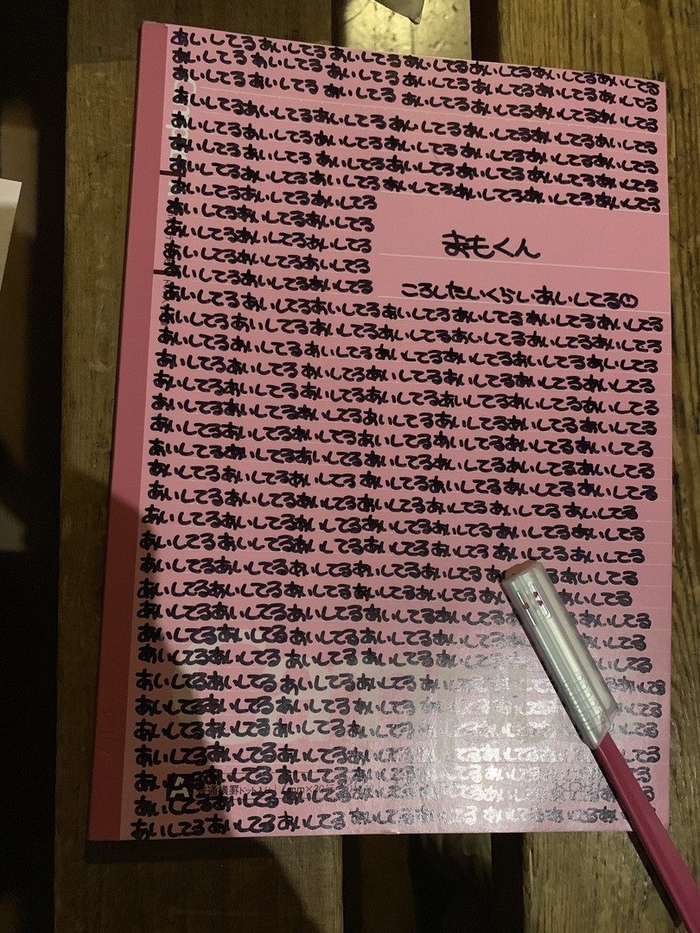 あいしてるあいしてるあいしてるあいしてるあいしてるあいしてるあいしてる
あいしてるあいしてるあいしてるあいしてるあいしてるあいしてるあいしてる
あいしてるあいしてるあいしてるあいしてるあいしてるあいしてるあいしてる
あいしてるあいしてるあいしてるあいしてるあいしてるあいしてるあいしてる
あいしてるあいしてるあいしてるあいしてるあいしてるあいしてるあいしてる
あいしてるあいしてるあいしてるあいしてるあいしてるあいしてるあいしてる
あいしてるあいしてるあいしてるあいしてるあいしてるあいしてるあいしてる
あいしてるあいしてるあいしてる
あいしてるあいしてるあいしてる
あいしてるあいしてるあいしてる
あいしてるあいしてるあいしてる
あいしてるあいしてるあいしてる
まもくん
ころしたいくらいあいしてる
あいしてるあいしてるあいしてるあいしてるあいしてるあいしてるあいしてる
あいしてるあいしてるあいしてるあいしてるあいしてるあいしてるあいしてる
あいしてるあいしてるあいしてるあいしてるあいしてるあいしてるあいしてる
あいしてるあいしてるあいしてるあいしてるあいしてるあいしてるあいしてる
あいしてるあいしてるあいしてるあいしてるあいしてるあいしてるあいしてる
あいしてるあいしてるあいしてるあいしてるあいしてるあいしてるあいしてる
あいしてるあいしてるあいしてるあいしてるあいしてるあいしてるあいしてる
あいしてるあいしてるあいしてるあいしてるあいしてるあいしてるあいしてる
あいしてるあいしてるあいしてるあいしてるあいしてるあいしてるあいしてる
あいしてるあいしてるあいしてるあいしてるあいしてるあいしてるあいしてる
あいしてるあいしてるあいしてるあいしてるあいしてるあいしてるあいしてる
あいしてるあいしてるあいしてるあいしてるあいしてるあいしてるあいしてる
あいしてるあいしてるあいしてるあいしてるあいしてるあいしてる
あいしてるあいしてるあいしてるあいしてるあいしてるあいしてる
あいしてるあいしてるあいしてるあいしてるあいしてるあいしてる
あいしてるあいしてるあいしてるあいしてるあいしてるあいしてる
あいしてるあいしてるあいしてるあいしてるあいしてるあいしてる
あいしてるあいしてるあいしてるあいしてるあいしてるあいしてる
あいしてるあいしてるあいしてるあいしてるあいしてるあいしてる
あいしてるあいしてるあいしてるあいしてるあいしてるあいしてる
あいしてるあいしてるあいしてるあいしてるあいしてるあいしてる
あいしてるあいしてるあいしてるあいしてるあいしてるあいしてる
A 普通横罫
あいしてるあいしてるあいしてるあいしてるあいしてる
あいしてるあいしてるあいしてるあいしてるあいしてる